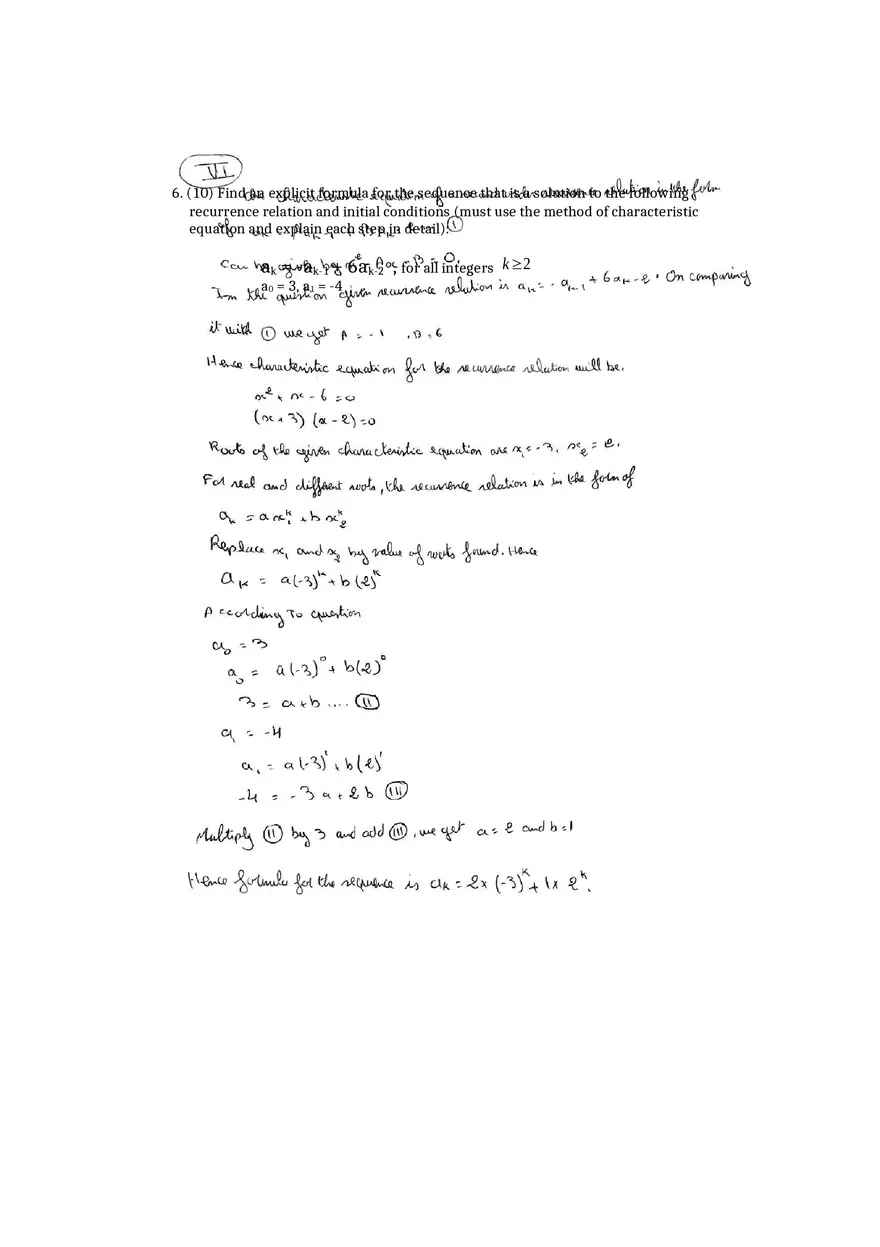 VI
6. (10) Find an explicit formula for the sequence that is a solution to the following
recurrence relation and initial conditions (must use the method of characteristic
equation and explain each step in detail): ①
relation in the form
for all integers k ≥ 2
a₀ = 3, a₁ = -4
In the question given recurrence relation is aₖ = - aₖ₋₁ + 6aₖ₋₂. On comparing
it with ① we get A = -1 , B = 6
Hence characteristic equation for the recurrence relation will be.
x² + x - 6 = 0
(x + 3) (x - 2) = 0
Roots of the given characteristic equation are x₁ = -3, x₂ = 2.
For real and different roots, the recurrence relation is in the form of
aₖ = a x₁ᵏ + b x₂ᵏ
Replace x₁ and x₂ by value of roots found. Hence
aₖ = a(-3)ᵏ + b(2)ᵏ
According To question
a₀ = 3
a₀ = a(-3)⁰ + b(2)⁰
3 = a + b .... (II)
a₁ = -4
a₁ = a(-3)¹ + b(2)¹
-4 = -3a + 2b (III)
Multiply (II) by 3 and add (III), we get a = 2 and b = 1
Hence formula for the sequence is aₖ = 2 x (-3)ᵏ + 1 x 2ᵏ.